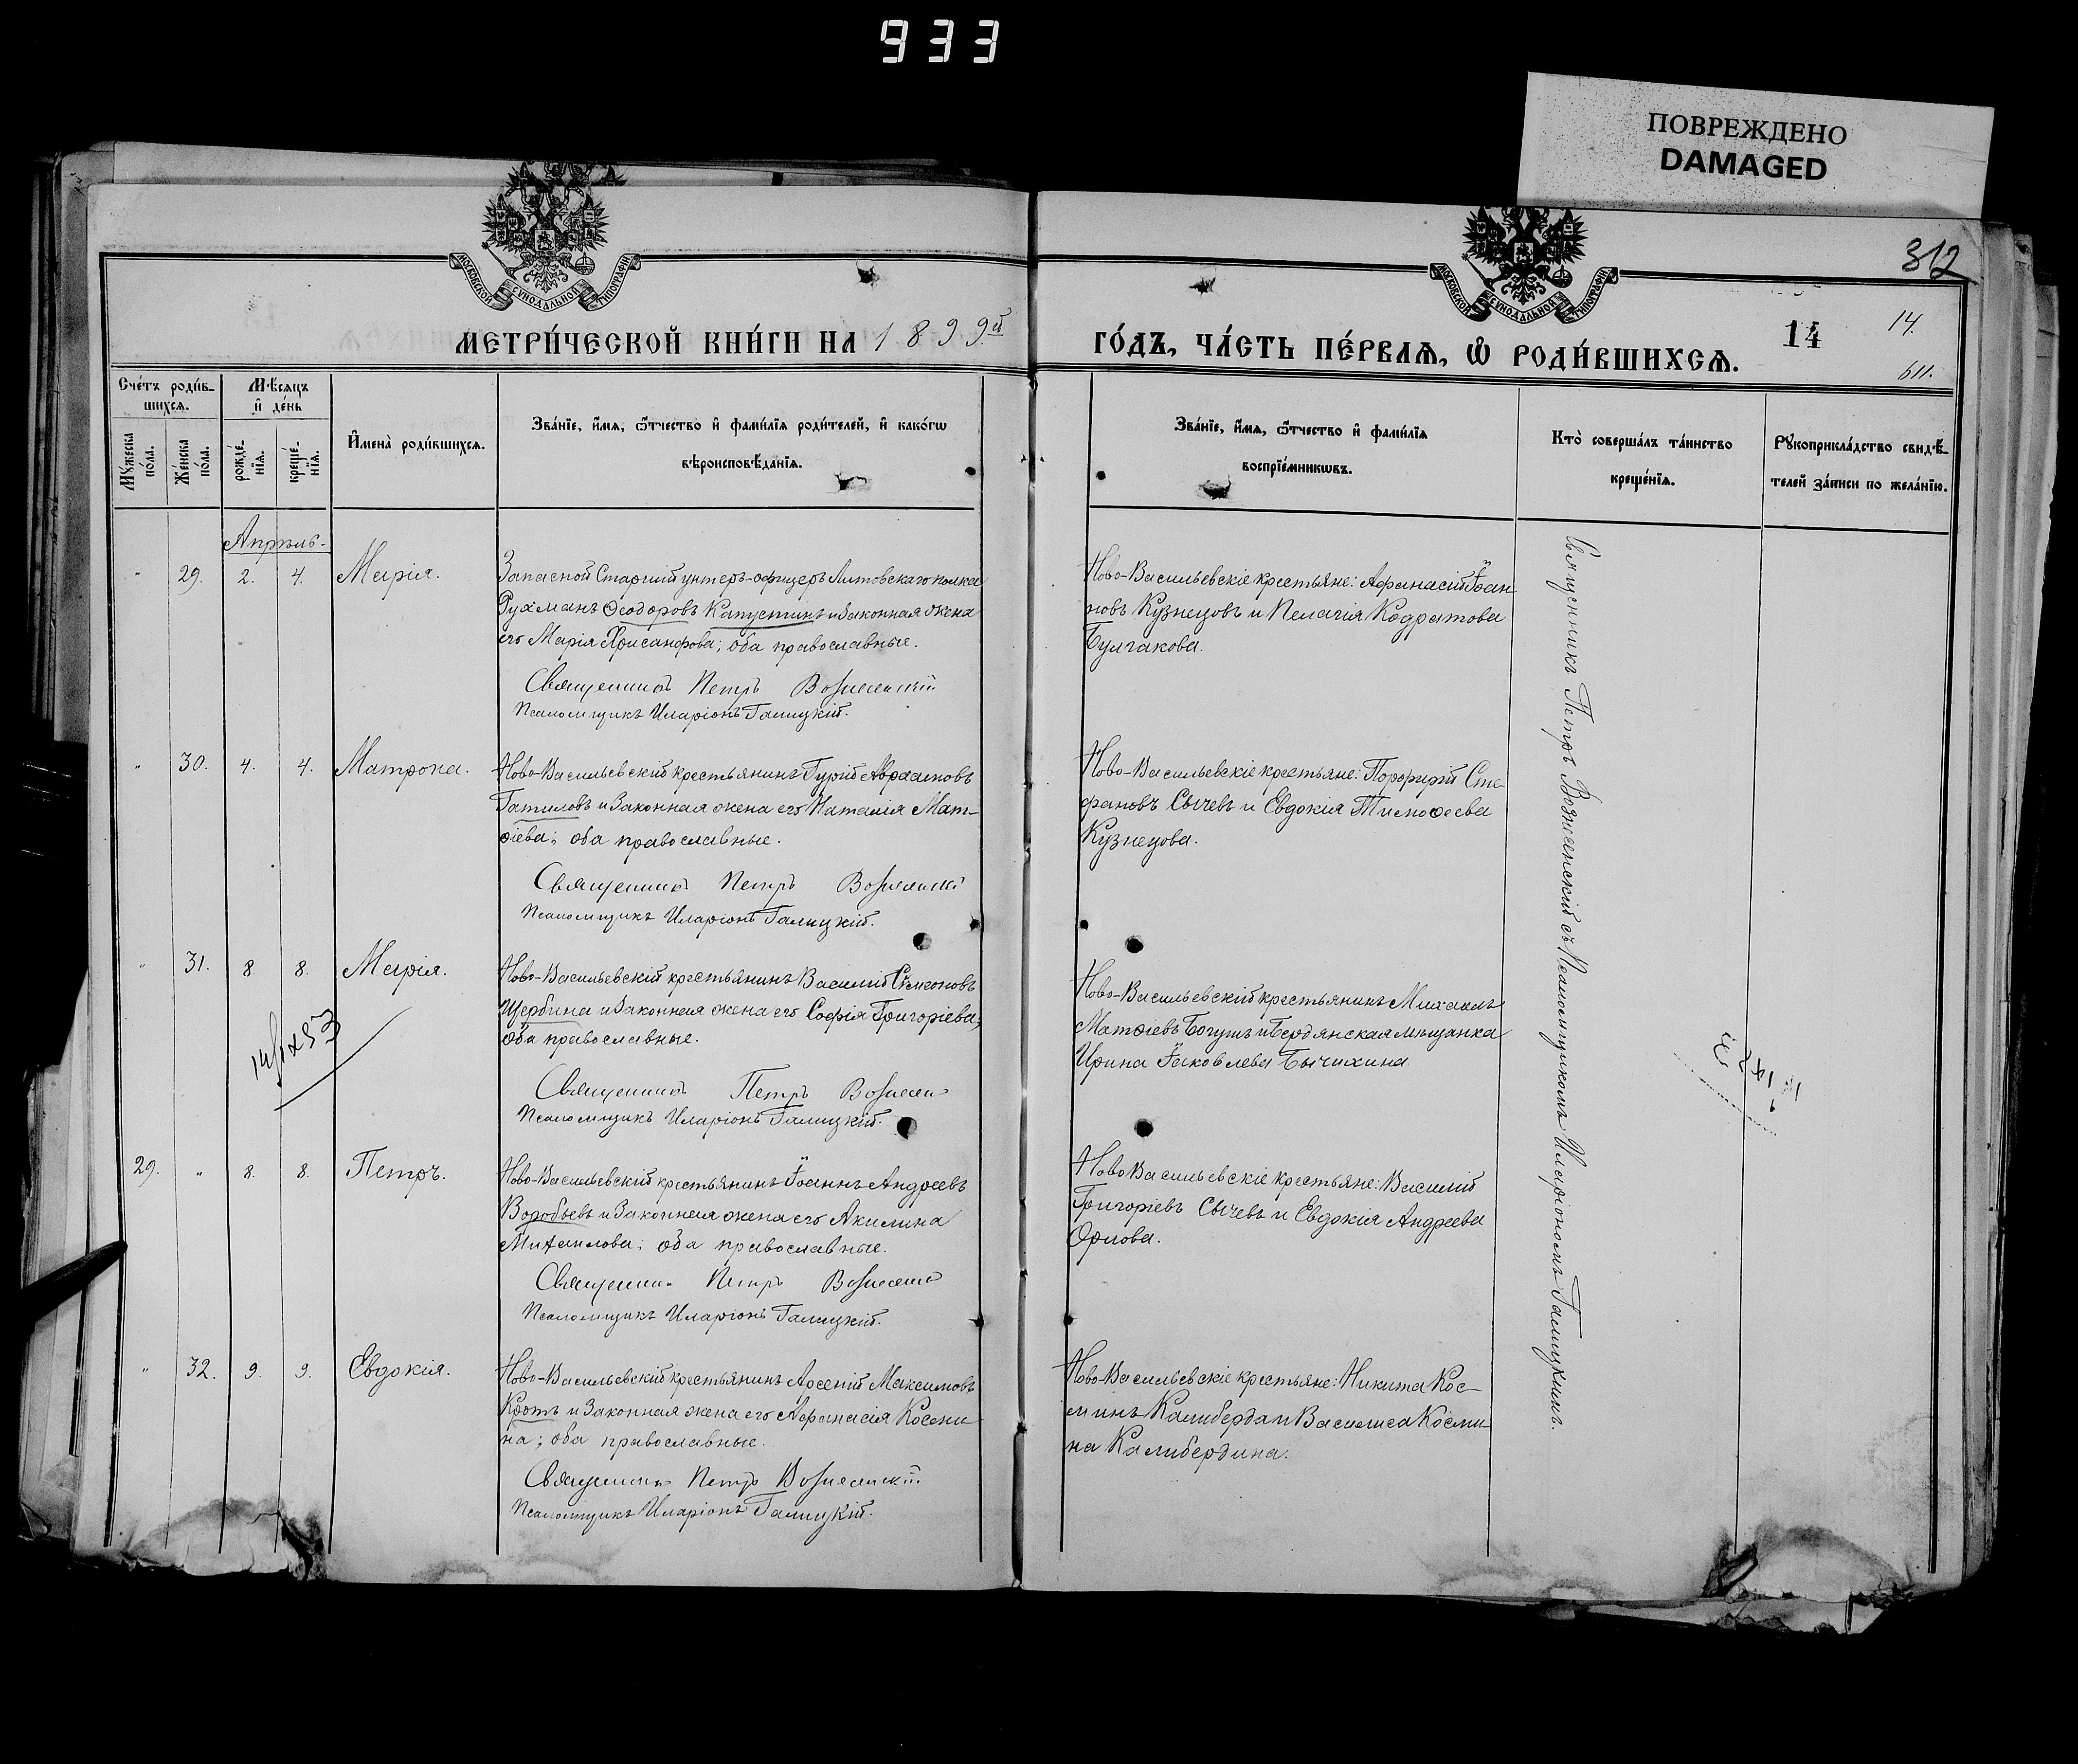 933
ПОВРЕЖДЕНО
DAMAGED
312
МОСКОВСКОЙ СѴНОДАЛЬНОЙ ТИПОГРАФІИ
МОСКОВСКОЙ СѴНОДАЛЬНОЙ ТИПОГРАФІИ
МЕТРИ́ЧЕСКОЙ КНИ́ГИ НА 1899й
ГО́ДЪ, ЧА́СТЬ ПЕ́РВАѦ, Ѽ РОДИ́ВШИХСѦ.
14
14.
611.
Сче́тъ роди́в-
шихсѧ.
Мѣ́сѧцъ
и҆ де́нь
Мꙋ́жеска
по́ла.
Же́нска
по́ла.
рожде́-
нїѧ.
креще́-
нїѧ.
И҆мена̀ роди́вшихсѧ.
Зва́нїе, и҆́мѧ, ѻ҆́тчество и҆ фами́лїѧ роди́телей, и҆ како́гѡ
вѣроисповѣ́данїѧ.
Зва́нїе, и҆́мѧ, ѻ҆́тчество и҆ фами́лїѧ
воспрїе́мникѡвъ.
Кто̀ соверша́лъ та́инство
креще́нїѧ.
Рꙋкоприкла́дство свидѣ́-
телей за́писи по жела́нїю.
Апрѣль-
" 29. 2. 4. Марія.
Запасной Старшій унтеръ-офицеръ Литовскаго полка
Рухманъ Ѳеодоровъ Капустинъ и законная жена
его Марія Хрисанфова; оба православные.
Священникъ Петръ Вознесенскій
Псаломщикъ Иларіонъ Галицкій.
Ново-Васильевскіе крестьяне: Афанасій Іоан-
новъ Кузнецовъ и Пелагія Кодратова
Булгакова.
" 30. 4. 4. Матрона.
Ново-Васильевскій крестьянинъ Гурій Авраамовъ
Гатиловъ и законная жена его Наталія Мат-
ѳіева; оба православные.
Священникъ Петръ Вознесенскі
Псаломщикъ Иларіонъ Галицкій.
Ново-Васильевскіе крестьяне: Порфирій Сте-
фановъ Сычевъ и Евдокія Тимоѳеева
Кузнецова.
" 31. 8. 8. Марія.
Ново-Васильевскій крестьянинъ Василій Сѵмеоновъ
Щербина и законная жена его Софія Григоріева;
оба православные.
Священникъ Петръ Вознесен
Псаломщикъ Иларіонъ Галицкій.
Ново-Васильевскій крестьянинъ Михаилъ
Матѳіевъ Богушъ и Бердянская мѣщанка
Ирина Іаковлева Бычихина.
29. " 8. 8. Петръ.
Ново-Васильевскій крестьянинъ Іоаннъ Андреевъ
Воробьевъ и законная жена его Акилина
Михаилова; оба православные.
Священни Петръ Вознесенс
Псаломщикъ Иларіонъ Галицкій.
Ново Васильевскіе крестьяне: Василій
Григоріевъ Сычевъ и Евдокія Андреева
Орлова.
" 32. 9. 9. Евдокія.
Ново-Васильевскій крестьянинъ Арсеній Максимовъ
Кротъ и законная жена его Афанасія Косми-
на; оба православные.
Священникъ Петръ Вознесенскій
Псаломщикъ Иларіонъ Галицкій.
Ново-Васильевскіе крестьяне: Никита Кос-
минъ Калиберда и Василиса Косми-
на Калибердина.
Священникъ Петръ Вознесенскій съ Псаломщикомъ Иларіономъ Галицкимъ.